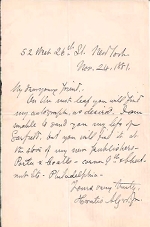 52 West 26th St. New York
Nov. 24. 1881.
My young friend.
On the next leaf you will find
my autograph, as desired. I am
unable to send you my life of
Garfield, but you will find it at
the store of my new publishers
Porter & Coates - corner 9th & Chestnut
nut Sts - Philadelphia -
Yours very truly,
Horatio Alger Jr.